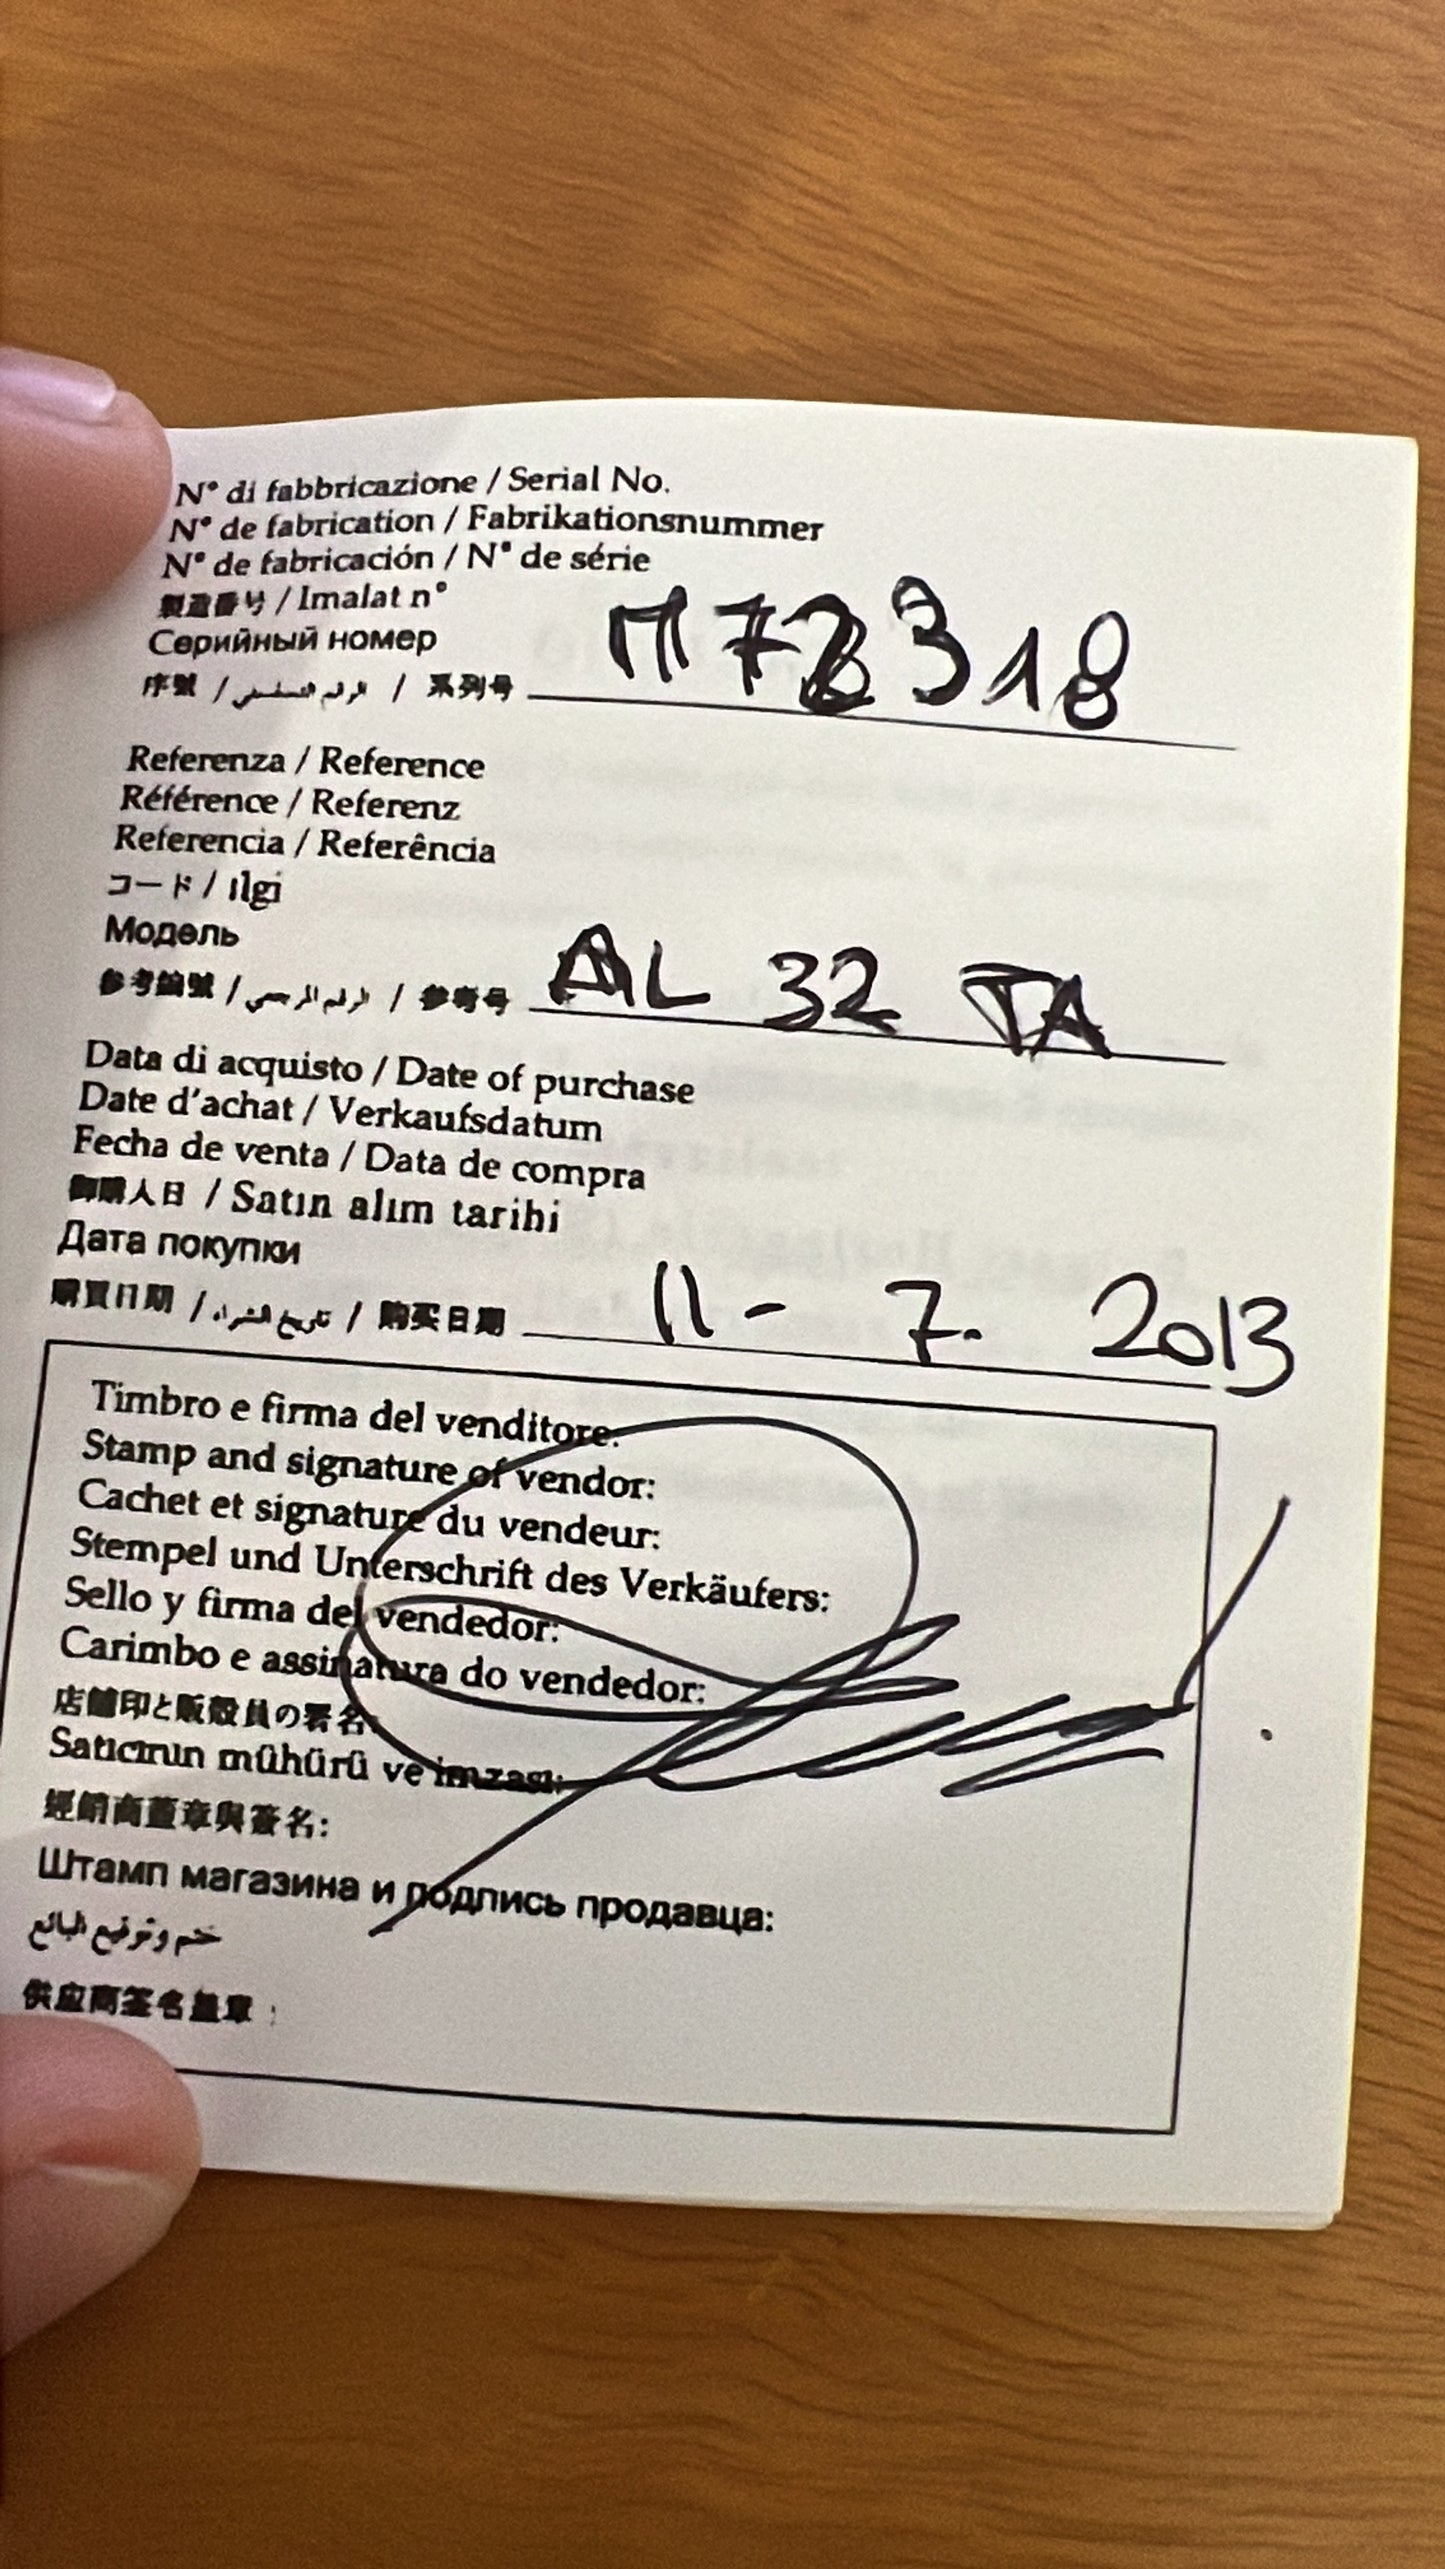 N° di fabbricazione / Serial No.
N° de fabrication / Fabrikationsnummer
N° de fabricación / N° de série
製造番号 / Imalat n°
Серийный номер
序號 / الرقم التسلسلي / 系列号 318
Referenza / Reference
Référence / Referenz
Referencia / Referência
コード / ılgi
Модель
参考編號 / الرقم المرجعي / 参考号 AL 32 TA
Data di acquisto / Date of purchase
Date d'achat / Verkaufsdatum
Fecha de venta / Data de compra
御購入日 / Satın alım tarihi
Дата покупки
購買日期 / تاريخ الشراء / 购买日期 11 - 7. 2013
Timbro e firma del venditore:
Stamp and signature of vendor:
Cachet et signature du vendeur:
Stempel und Unterschrift des Verkäufers:
Sello y firma del vendedor:
Carimbo e assinatura do vendedor:
店舗印と販殻員の署名:
Satıcının mühürü ve imzası:
經銷商蓋章與簽名:
Штамп магазина и подпись продавца:
ختم وتوقيع البائع
供应商签名盖章 :